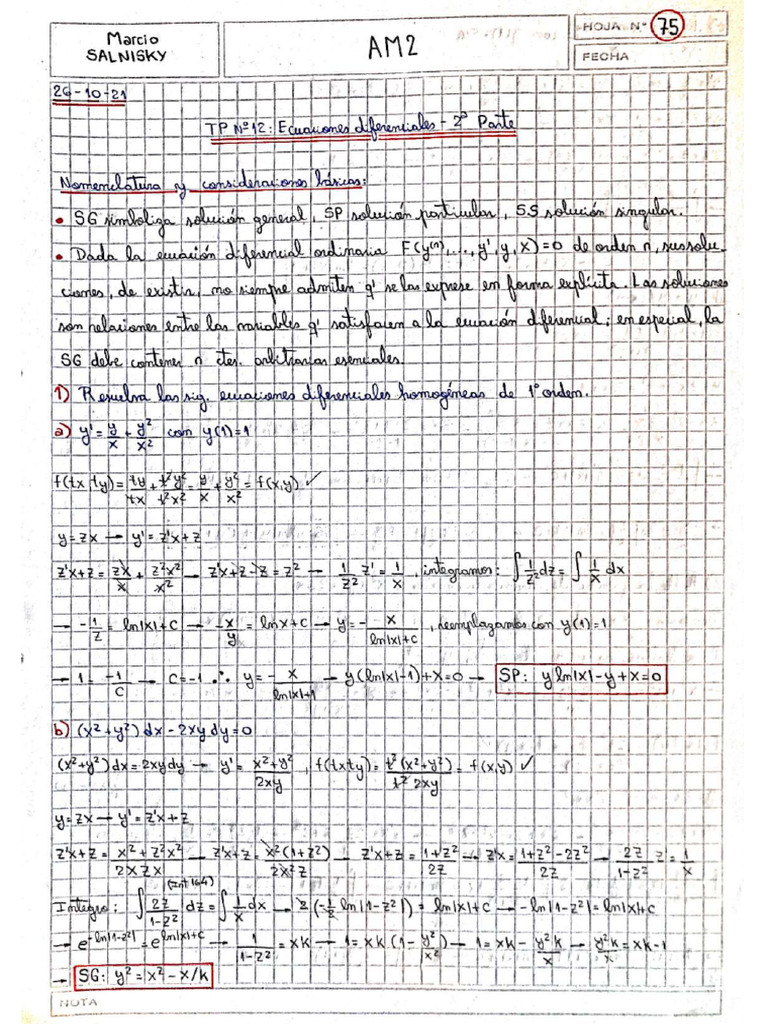 Marcio
SALNISKY
AM2
HOJA N° 75
FECHA
26-10-21
TP N°12: Ecuaciones diferenciales - 2° Parte
Nomenclatura y consideraciones básicas:
• SG simboliza solución general, SP solución particular, SS solución singular.
• Dada la ecuación diferencial ordinaria F(y⁽ⁿ⁾,..., y', y, x)=0 de orden n, sus solu-
ciones, de existir, no siempre admiten q' se las exprese en forma explícita. Las soluciones
son relaciones entre las variables q' satisfacen a la ecuación diferencial; en especial, la
SG debe contener n ctes. arbitrarias esenciales.
1) Resuelva las sig. ecuaciones diferenciales homogéneas de 1° orden.
a) y' = y/x + y²/x² con y(1)=1
f(tx,ty) = ty/tx + t²y²/t²x² = y/x + y²/x² = f(x,y) ✓
y=zx → y'=z'x+z
z'x+z = zx/x + z²x²/x² → z'x+z-z=z² → 1/z² z' = 1/x, integramos: ∫ 1/z² dz = ∫ 1/x dx
→ -1/z = ln|x|+C → -x/y = lnx+C → y = - x/(ln|x|+C), reemplazamos con y(1)=1
→ 1 = -1/C → C=-1 ∴ y = - x/(ln|x|+1) → y(ln|x|-1)+x=0 → SP: y ln|x|-y+x=0
b) (x²+y²)dx - 2xy dy=0
(x²+y²)dx=2xydy → y' = (x²+y²)/2xy, f(txty) = t²(x²+y²)/t² 2xy = f(x,y) ✓
y=zx → y'=z'x+z
z'x+z = (x²+z²x²)/2xzx → z'x+z = x²(1+z²)/2x²z → z'x+z = (1+z²)/2z → z'x = (1+z²-2z²)/2z → 2z/(1-z²) z' = 1/x
(Int 164)
Integro: ∫ 2z/(1-z²) dz = ∫ 1/x dx → 2(-1/2 ln|1-z²|) = ln|x|+C → -ln|1-z²|=ln|x|+C
→ e^(-ln|1-z²|) = e^(ln|x|+C) → 1/(1-z²) = xk → 1 = xk(1 - y²/x²) → 1 = xk - y²k/x → y²k/x = xk-1
→ SG: y² = x² - x/k
NOTA